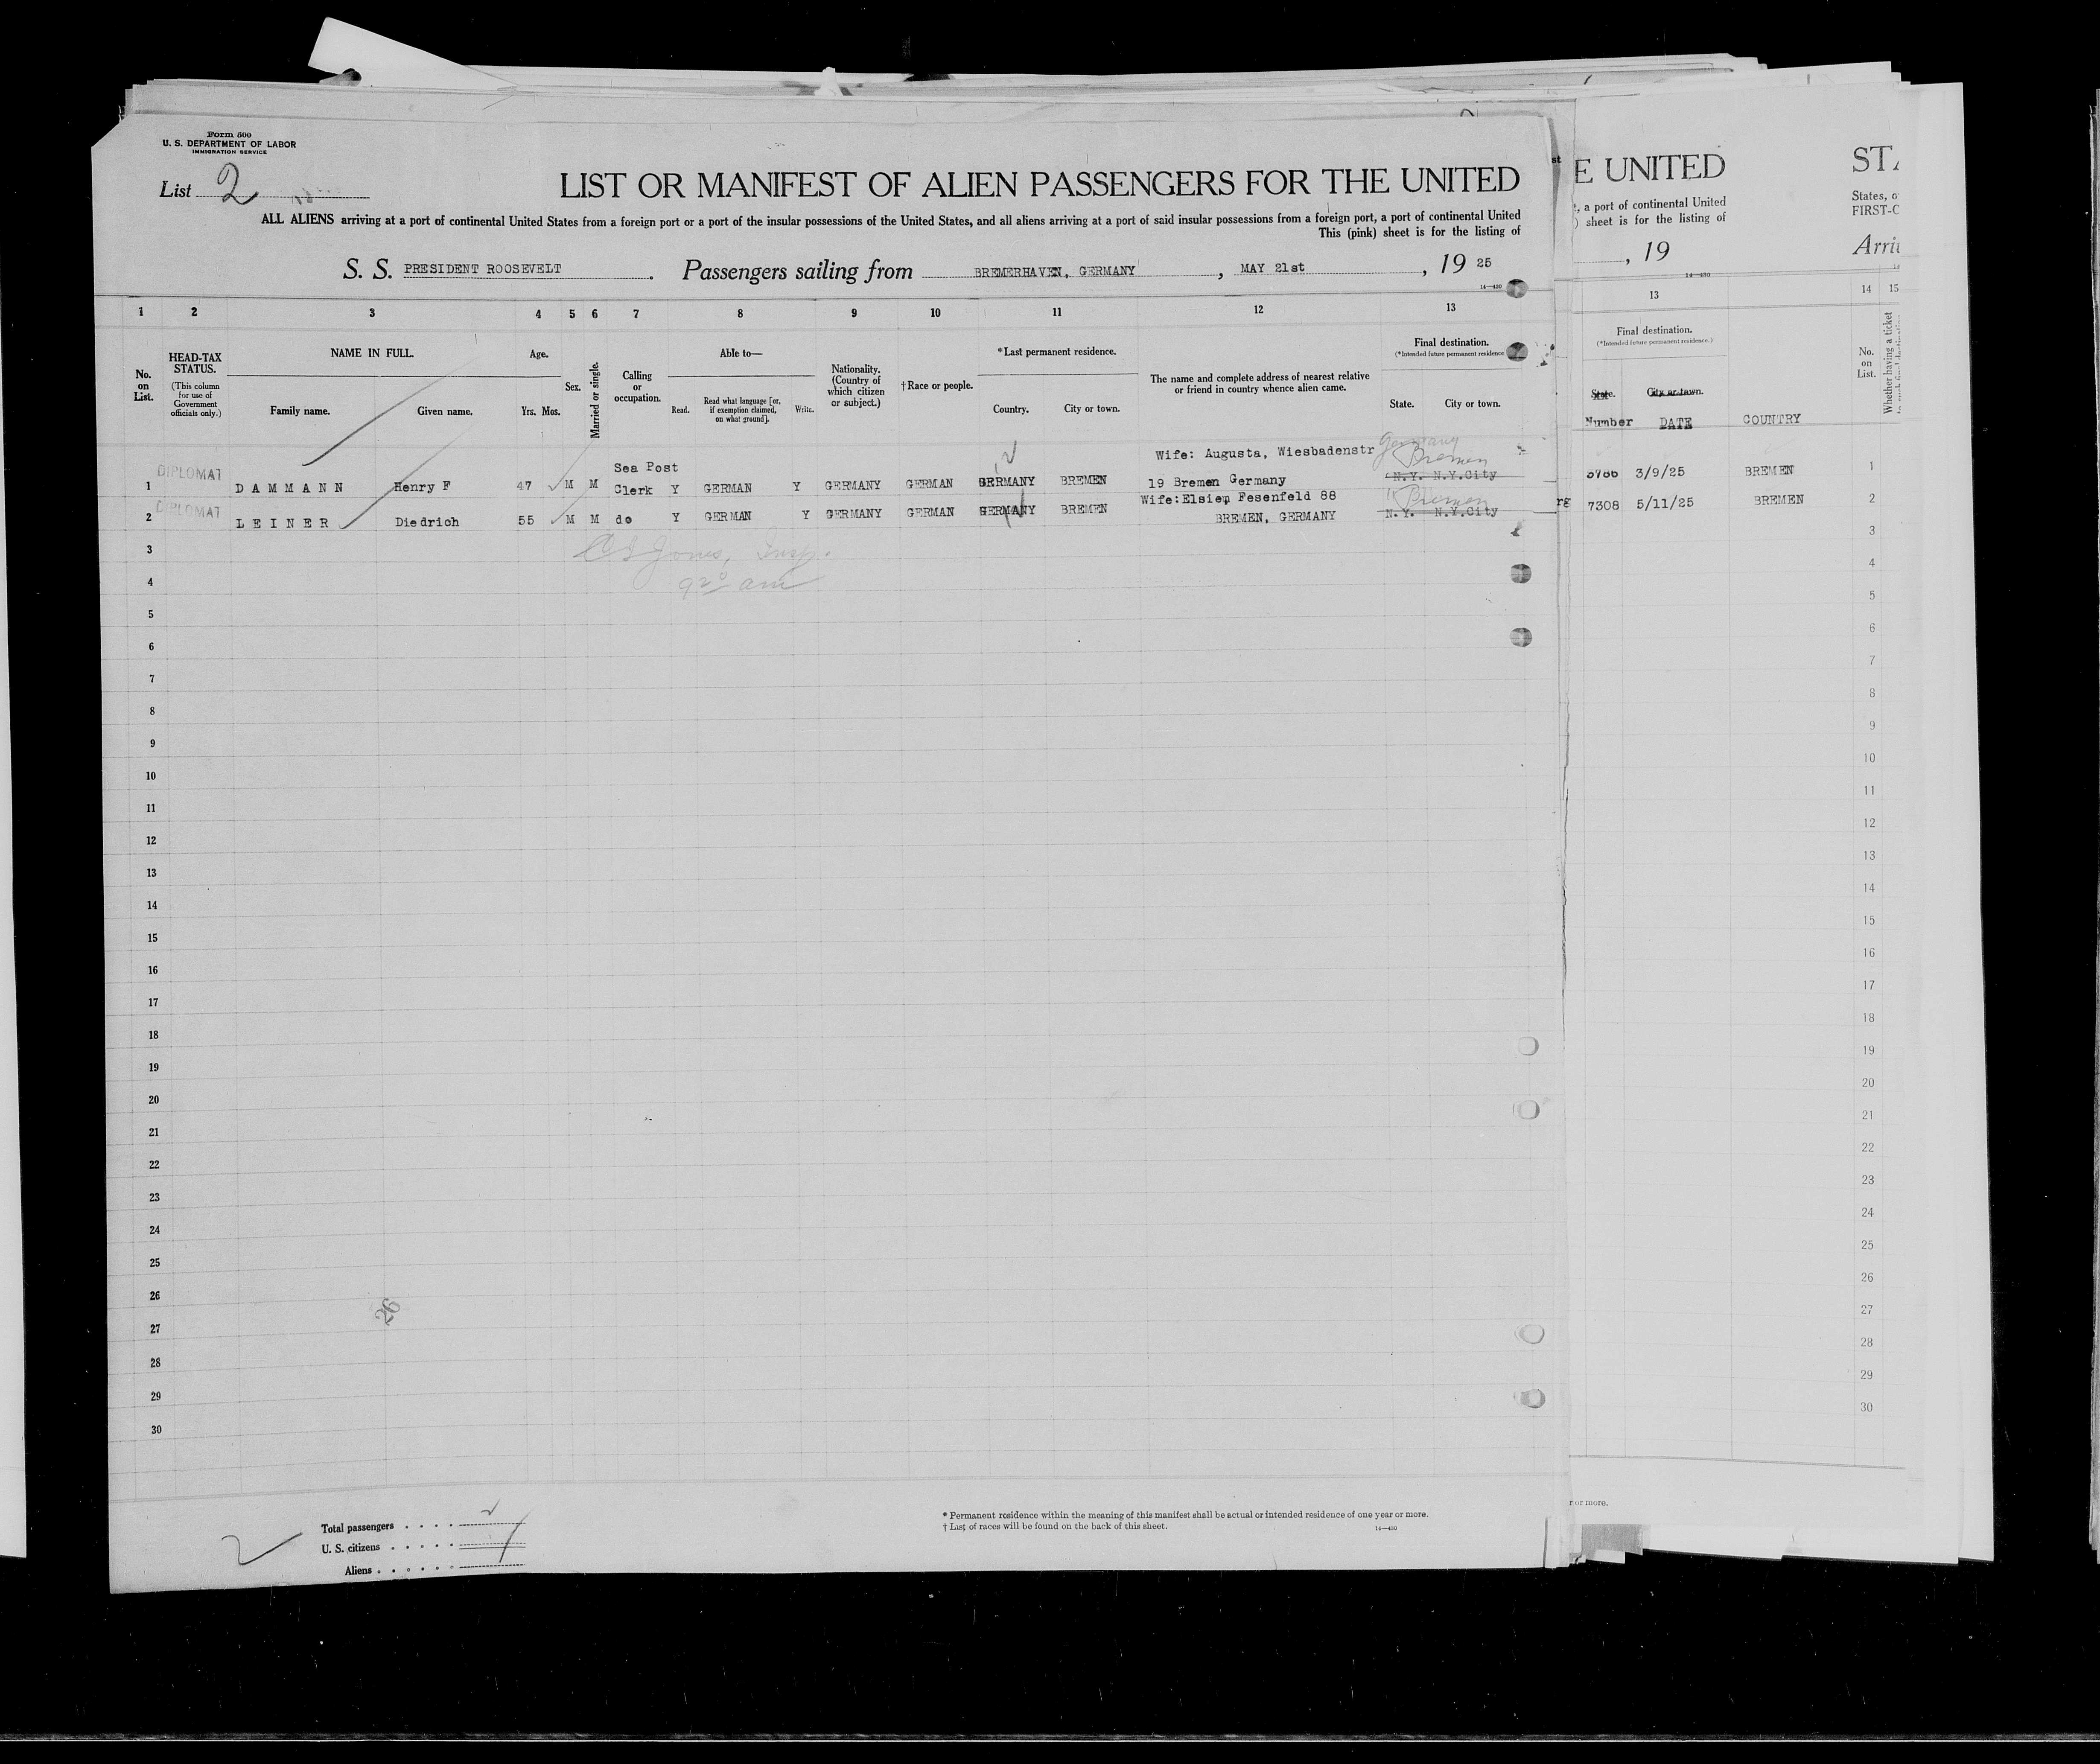 Form 500
U. S. DEPARTMENT OF LABOR
IMMIGRATION SERVICE
List 2
LIST OR MANIFEST OF ALIEN PASSENGERS FOR THE UNITED
ALL ALIENS arriving at a port of continental United States from a foreign port or a port of the insular possessions of the United States, and all aliens arriving at a port of said insular possessions from a foreign port, a port of continental United
This (pink) sheet is for the listing of
S. S. PRESIDENT ROOSEVELT. Passengers sailing from BREMERHAVEN, GERMANY, MAY 21st, 19 25
14—430
1 2 3 4 5 6 7 8 9 10 11 12 13
No. on List.
HEAD-TAX STATUS.
(This column for use of Government officials only.)
NAME IN FULL.
Family name. Given name.
Age.
Yrs. Mos.
Sex.
Married or single.
Calling or occupation.
Able to—
Read. Read what language [or, if exemption claimed, on what ground]. Write.
Nationality. (Country of which citizen or subject.)
†Race or people.
*Last permanent residence.
Country. City or town.
The name and complete address of nearest relative or friend in country whence alien came.
Final destination.
(*Intended future permanent residence
State. City or town.
Wife: Augusta, Wiesbadenstr Germany
DIPLOMAT Sea Post Bremen
1 DAMMANN Henry F 47 M M Clerk Y GERMAN Y GERMANY GERMAN GERMANY BREMEN 19 Bremen Germany N.Y. N.Y.City
DIPLOMAT Wife: Fesenfeld 88 " Bremen
2 LEINER Diedrich 55 M M do Y GERMAN Y GERMANY GERMAN GERMANY BREMEN BREMEN, GERMANY N.Y. N.Y.City
3 Jones, Insp.
4 9 20 am
5
6
7
8
9
10
11
12
13
14
15
16
17
18
19
20
21
22
23
24
25
26
26
27
28
29
30
Total passengers . . . . 2
U. S. citizens . . . . .
Aliens . . . . . .
2
* Permanent residence within the meaning of this manifest shall be actual or intended residence of one year or more.
† List of races will be found on the back of this sheet.
14—430
st
E UNITED
, a port of continental United
) sheet is for the listing of
, 19
14—430
13
Final destination.
(*Intended future permanent residence.)
State. City or town.
Number DATE COUNTRY
3/9/25 BREMEN
rg 7308 5/11/25 BREMEN
r or more.
STA
States, o
FIRST-C
Arri
14 15
No. on List.
Whether having a ticket
1
2
3
4
5
6
7
8
9
10
11
12
13
14
15
16
17
18
19
20
21
22
23
24
25
26
27
28
29
30